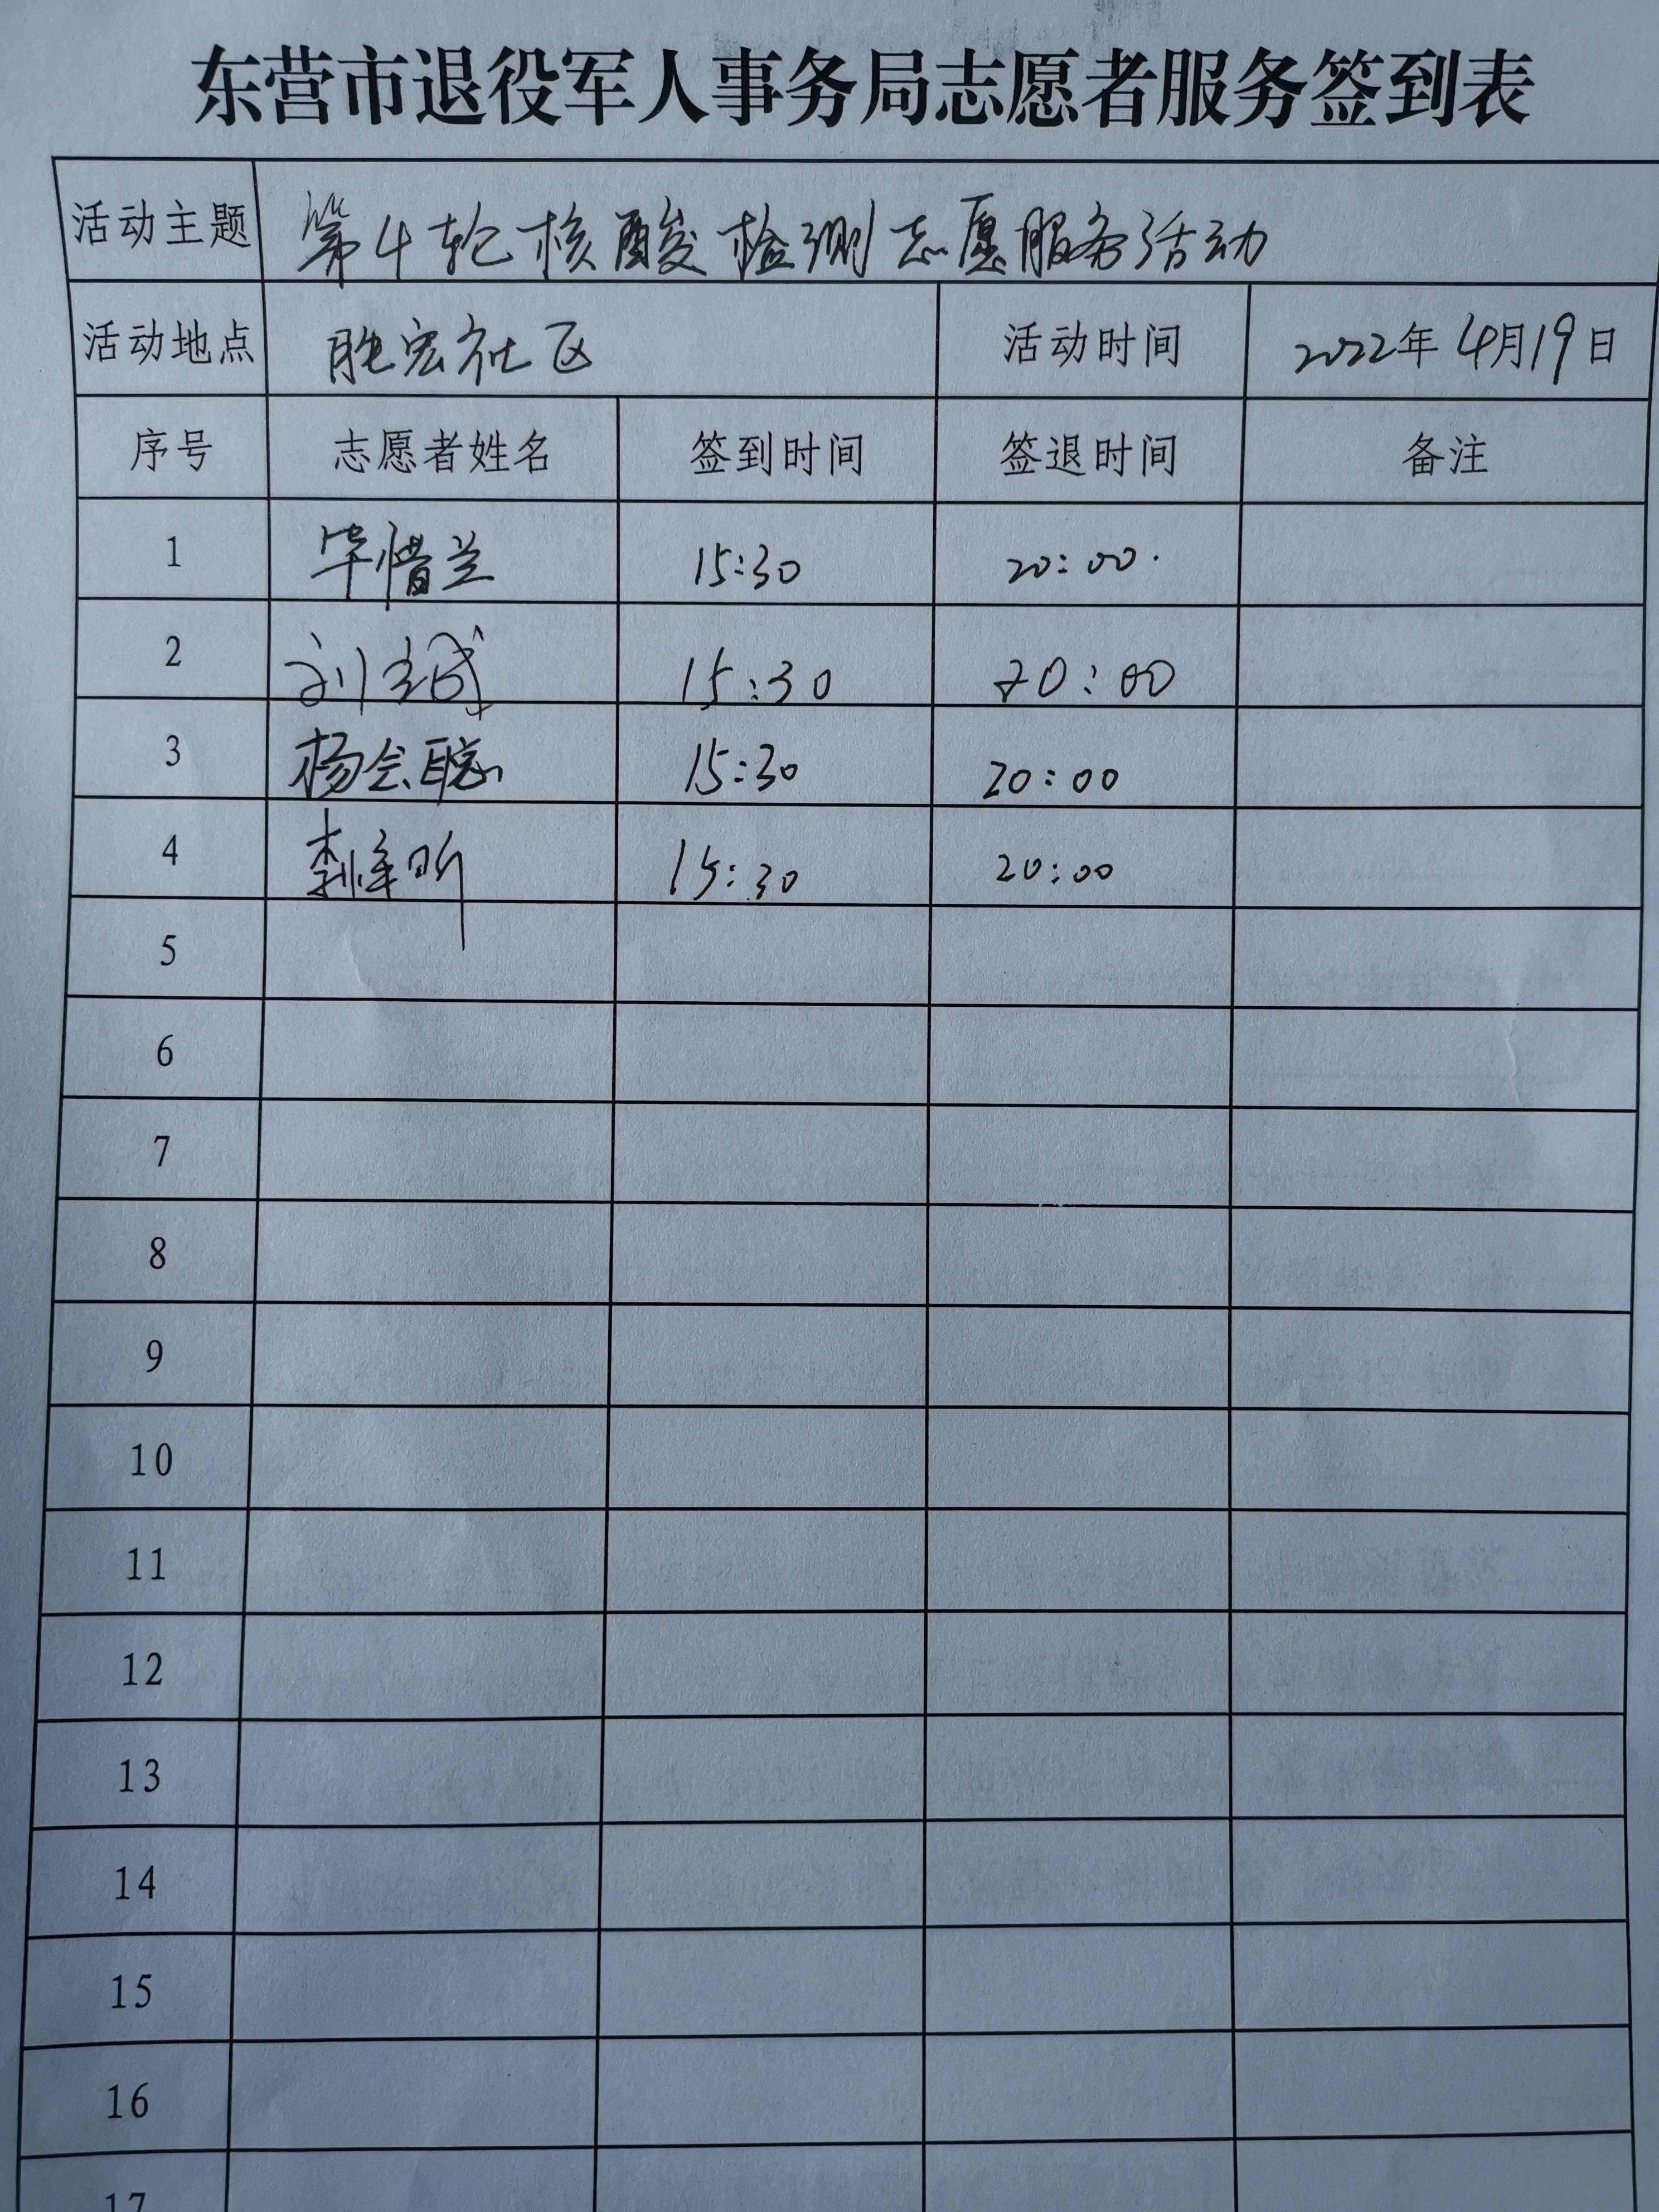 东营市退役军人事务局志愿者服务签到表
活动主题 第4轮核酸检测志愿服务活动
活动地点 胜宏社区 活动时间 2022年4月19日
序号 志愿者姓名 签到时间 签退时间 备注
1 毕惜兰 15:30 20:00.
2 刘 15:30 20:00
3 杨会聪 15:30 20:00
4 李 昕 15:30 20:00
5
6
7
8
9
10
11
12
13
14
15
16
17